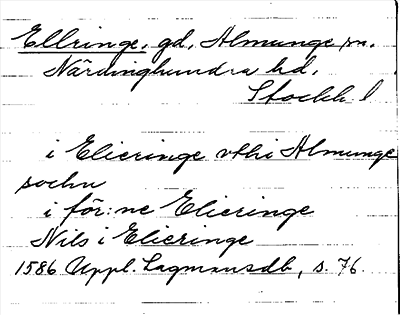 Ellringe, gd, Almunge sn.
Närdinghundra hd,
Stockh. l
i Elieringe vthi Almunge
sochn
i för:ne Elieringe
Nils i Elieringe
1586 Uppl. Lagmansdb, s. 76.